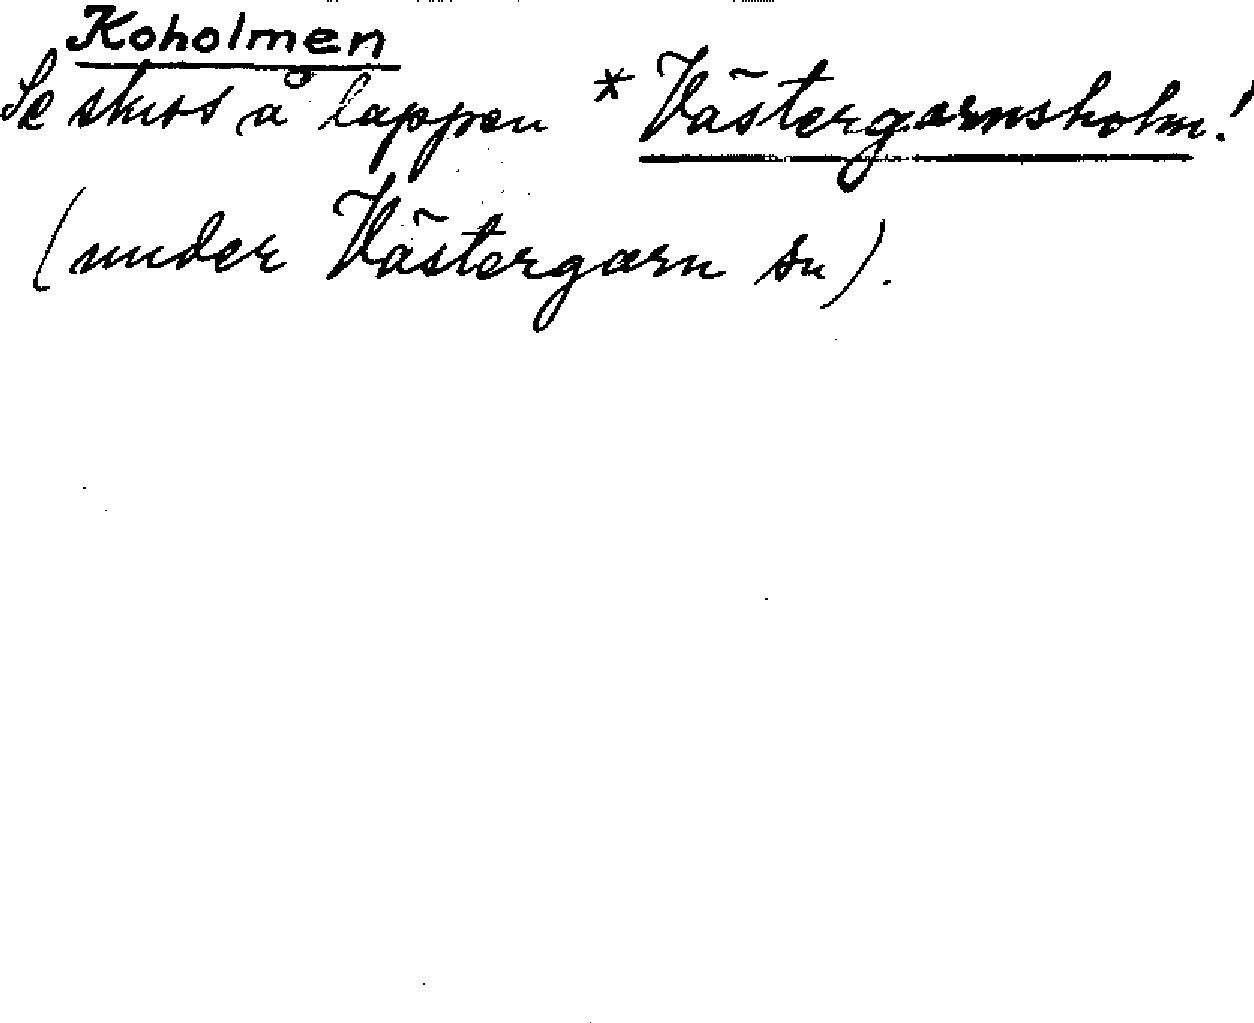 Koholmen
Se skiss å lappen * Västergarnsholm!
(under Västergarn sn).